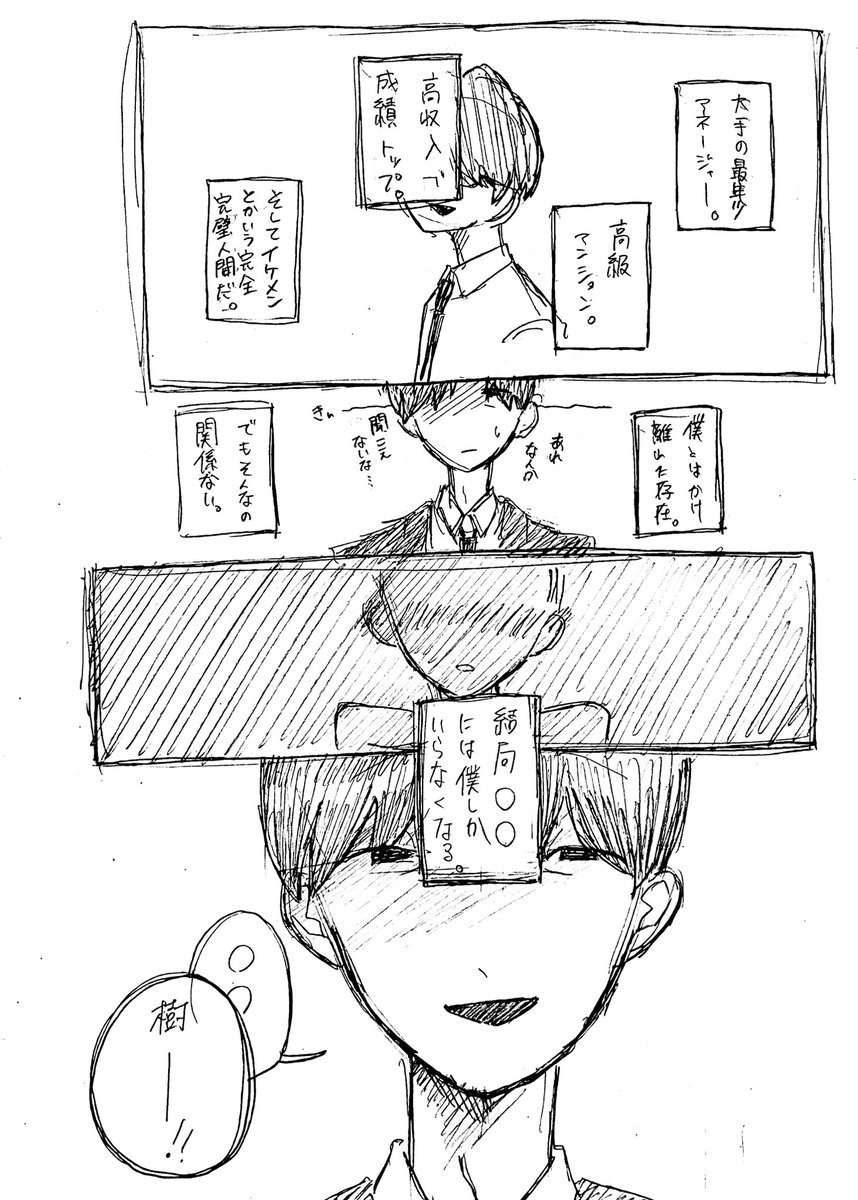 大手の最年少
マネージャー。
高級
マンション。
高収入で
成績トップ。
そしてイケメン
とかいう完全
完璧人間だ。
僕とはかけ
離れた存在。
あれ
なんか
聞こえ
ないな…
でもそんなの
関係ない。
結局○○
には僕しか
いらなくなる。
○○
樹ー!!